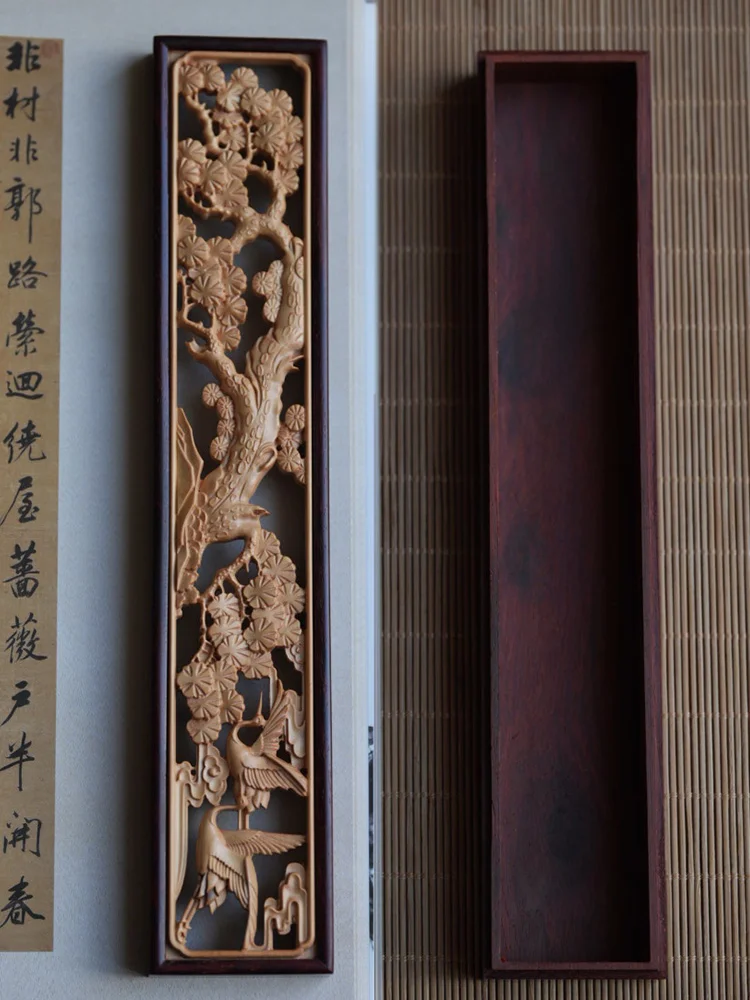 非村非郭路縈迴繞屋薔薇戶半開春